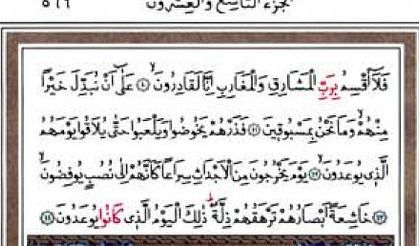 الجزء التاسع والعشرون ٥٦٩
فَلَٓا اُقْسِمُ بِرَبِّ الْمَشَارِقِ وَالْمَغَارِبِ اِنَّا لَقَادِرُونَۙ ﴿٤٠﴾ عَلٰٓى اَنْ نُبَدِّلَ خَيْرًا
مِنْهُمْۙ وَمَا نَحْنُ بِمَسْبُوقِينَ ﴿٤١﴾ فَذَرْهُمْ يَخُوضُوا وَيَلْعَبُوا حَتّٰى يُلَاقُوا يَوْمَهُمُ
الَّذِي يُوعَدُونَۙ ﴿٤٢﴾ يَوْمَ يَخْرُجُونَ مِنَ الْاَجْدَاثِ سِرَاعًا كَاَنَّهُمْ اِلٰى نُصُبٍ يُوفِضُونَۙ
﴿٤٣﴾ خَاشِعَةً اَبْصَارُهُمْ تَرْهَقُهُمْ ذِلَّةٌۜ ذٰلِكَ الْيَوْمُ الَّذِي كَانُوا يُوعَدُونَ ﴿٤٤﴾